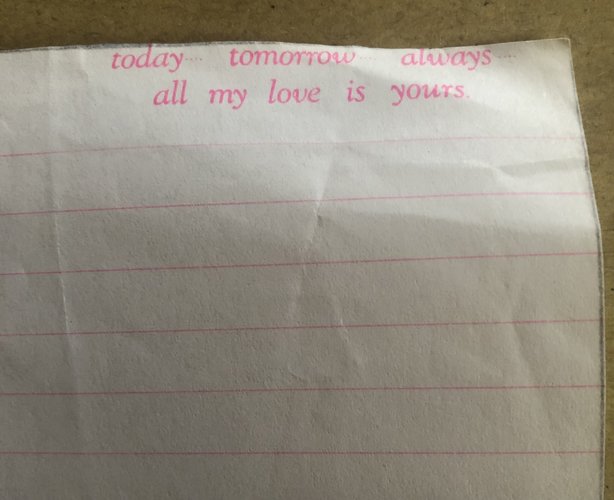 today.... tomorrow.... always....
all my love is yours.